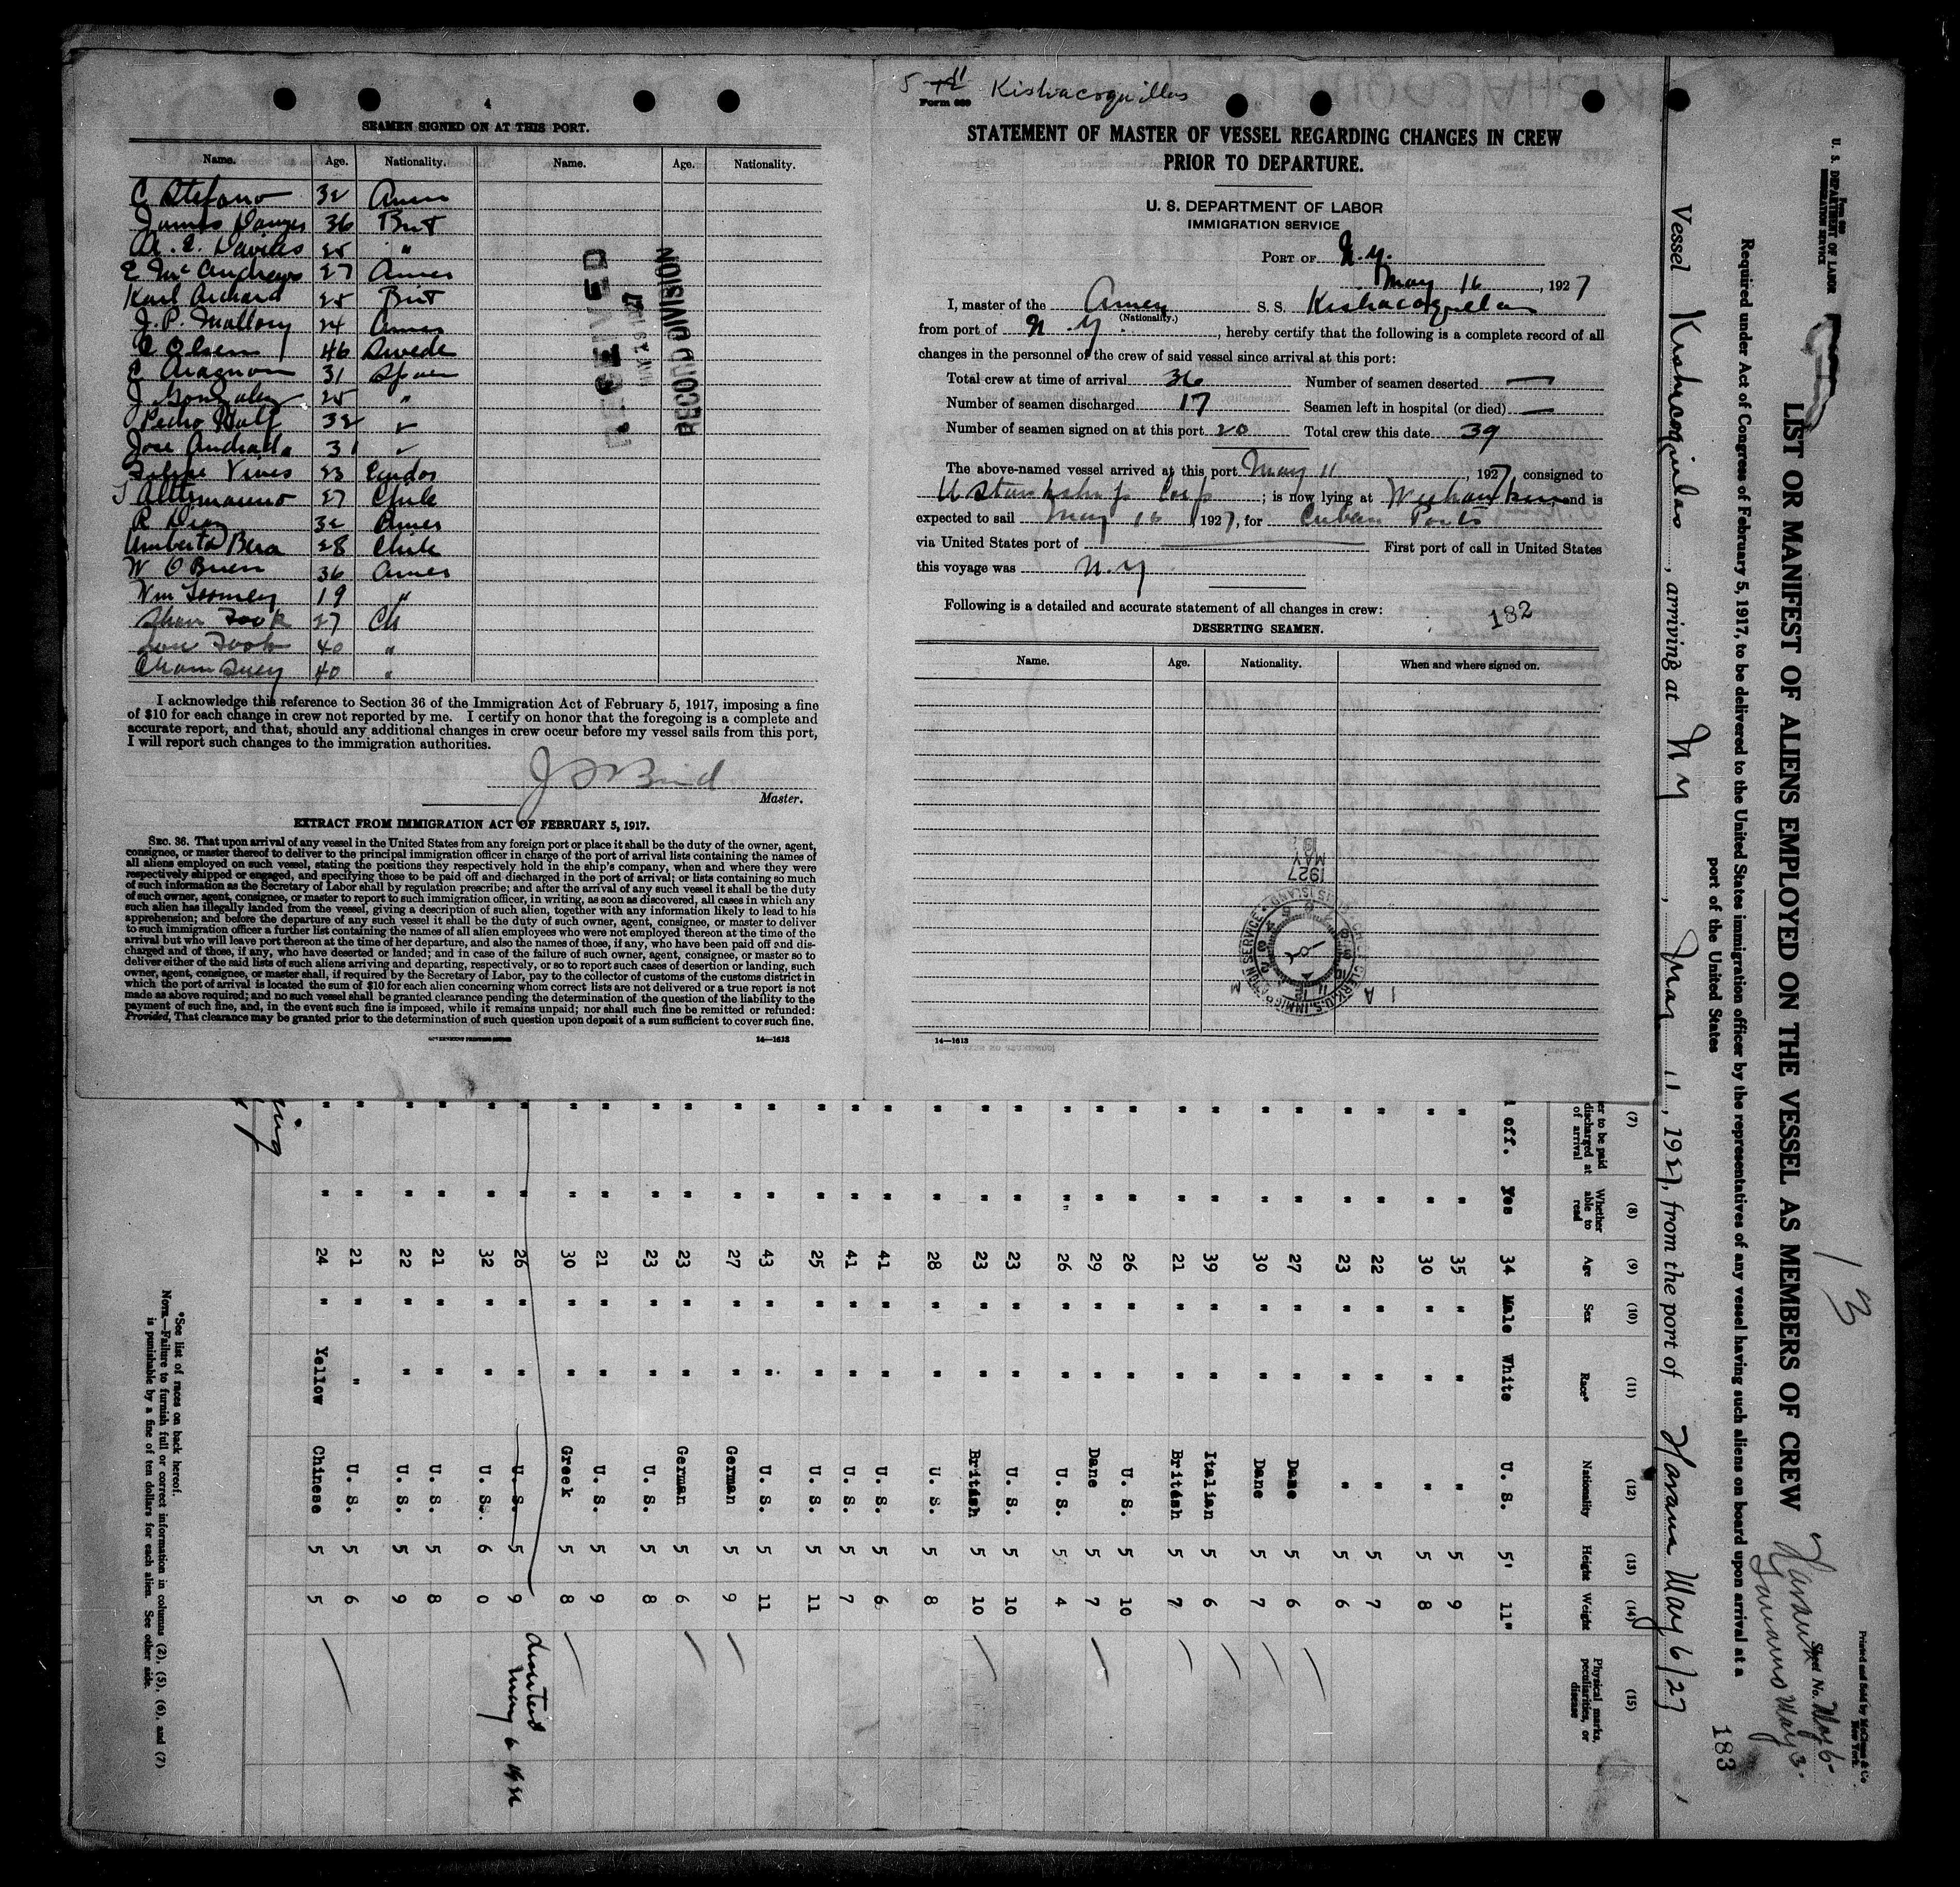 4
SEAMEN SIGNED ON AT THIS PORT.
Name. Age. Nationality. Name. Age. Nationality.
C Stefano 32 Amer
James 36 Brit
25 "
E McAndrews 27 Amer
Karl 25 Brit
J. P. Mallory 24 Amer
C Olsen 46 Swede
C Aragnon 31 Spain
J Gonzalez 25 "
Pedro 32 "
Jose Andrada 31 "
Vives 23
27 Chile
R Diaz 32 Amer
Umberto Bera 28 Chile
W O Brien 36 Amer
Wm Toomey 19 "
Fook 27 Ch
Fook 40 "
Cham Suey 40 "
I acknowledge this reference to Section 36 of the Immigration Act of February 5, 1917, imposing a fine
of $10 for each change in crew not reported by me. I certify on honor that the foregoing is a complete and
accurate report, and that, should any additional changes in crew occur before my vessel sails from this port,
I will report such changes to the immigration authorities.
Master.
EXTRACT FROM IMMIGRATION ACT OF FEBRUARY 5, 1917.
SEC. 36. That upon arrival of any vessel in the United States from any foreign port or place it shall be the duty of the owner, agent,
consignee, or master thereof to deliver to the principal immigration officer in charge of the port of arrival lists containing the names of
all aliens employed on such vessel, stating the positions they respectively hold in the ship's company, when and where they were
respectively shipped or engaged, and specifying those to be paid off and discharged in the port of arrival; or lists containing so much
of such information as the Secretary of Labor shall by regulation prescribe; and after the arrival of any such vessel it shall be the duty
of such owner, agent, consignee, or master to report to such immigration officer, in writing, as soon as discovered, all cases in which any
such alien has illegally landed from the vessel, giving a description of such alien, together with any information likely to lead to his
apprehension; and before the departure of any such vessel it shall be the duty of such owner, agent, consignee, or master to deliver
to such immigration officer a further list containing the names of all alien employees who were not employed thereon at the time of the
arrival but who will leave port thereon at the time of her departure, and also the names of those, if any, who have been paid off and dis-
charged and of those, if any, who have deserted or landed; and in case of the failure of such owner, agent, consignee, or master so to
deliver either of the said lists of such aliens arriving and departing, respectively, or so to report such cases of desertion or landing, such
owner, agent, consignee, or master shall, if required by the Secretary of Labor, pay to the collector of customs of the customs district in
which the port of arrival is located the sum of $10 for each alien concerning whom correct lists are not delivered or a true report is not
made as above required; and no such vessel shall be granted clearance pending the determination of the question of the liability to the
payment of such fine, and, in the event such fine is imposed, while it remains unpaid; nor shall such fine be remitted or refunded:
Provided, That clearance may be granted prior to the determination of such question upon deposit of a sum sufficient to cover such fine.
GOVERNMENT PRINTING OFFICE 14—1613
RECEIVED
RECORD DIVISION
5 11 Kishacoquillas
Form 689
STATEMENT OF MASTER OF VESSEL REGARDING CHANGES IN CREW
PRIOR TO DEPARTURE.
U. S. DEPARTMENT OF LABOR
IMMIGRATION SERVICE
PORT OF N.Y.
May 16, 1927
I, master of the Amer S. S. Kishacoquillas
(Nationality.)
from port of N.Y., hereby certify that the following is a complete record of all
changes in the personnel of the crew of said vessel since arrival at this port:
Total crew at time of arrival 36 Number of seamen deserted —
Number of seamen discharged 17 Seamen left in hospital (or died) —
Number of seamen signed on at this port 20 Total crew this date 39
The above-named vessel arrived at this port May 11, 1927, consigned to
Corp; is now lying at Weehawken, and is
expected to sail May 16, 1927, for Cuban Ports
via United States port of — First port of call in United States
this voyage was N.Y
Following is a detailed and accurate statement of all changes in crew: 182
DESERTING SEAMEN.
Name. Age. Nationality. When and where signed on.
MAY 1927
14—1613
U. S. DEPARTMENT OF LABOR
IMMIGRATION SERVICE
Printed and Sold by
New York
13
LIST OR MANIFEST OF ALIENS EMPLOYED ON THE VESSEL AS MEMBERS OF CREW
Sheet No.
Required under Act of Congress of February 5, 1917, to be delivered to the United States immigration officer by the representatives of any vessel having such aliens on board upon arrival at a
port of the United States
183
Vessel Kishacoquillas, arriving at N Y, May 11, 1927, from the port of Havana May 6/27
(7) (8) (9) (10) (11) (12) (13) (14) (15)
er to be paid discharged at of arrival Whether able to read Age Sex Race* Nationality Height Weight Physical marks, peculiarities, or disease
off. Yes 34 Male White U. S. 5' 11"
" " 35 " " " 5 9
" " 30 " " " 5 8
" " 22 " " " 5 7
" " 23 " " " 5 6
" " 27 " " Dane 5 6
" " 30 " " Dane 5 7
" " 39 " " Italian 5 6
" " 21 " " British 5 7
" " 26 " " U. S. 5 10
" " 29 " " Dane 5 7
" " 26 " " U. S. 5 4
" " 23 " " U. S. 5 10
" " 23 " " British 5 10
" " 28 " " U. S. 5 8
" " 41 " " U. S. 5 6
" " 41 " " U. S. 5 7
" " 25 " " U. S. 5 11
" " 43 " " U. S. 5 11
" " 27 " " German 5 9
" " 23 " " German 5 6
" " 23 " " U. S. 5 8
" " 21 " " U. S. 5 9
" " 30 " " Greek 5 8
" " 26 " " U. S. 5 9 deserted May 6
" " 32 " " U. S. 6 0
" " 21 " " U. S. 5 8
" " 22 " " U. S. 5 9
" " 21 " " U. S. 5 6
" " 24 " Yellow Chinese 5 5
*See list of races on back hereof.
NOTE—Failure to furnish full or correct information in columns (2), (5), (6), and (7)
is punishable by a fine of ten dollars for each alien. See other side.